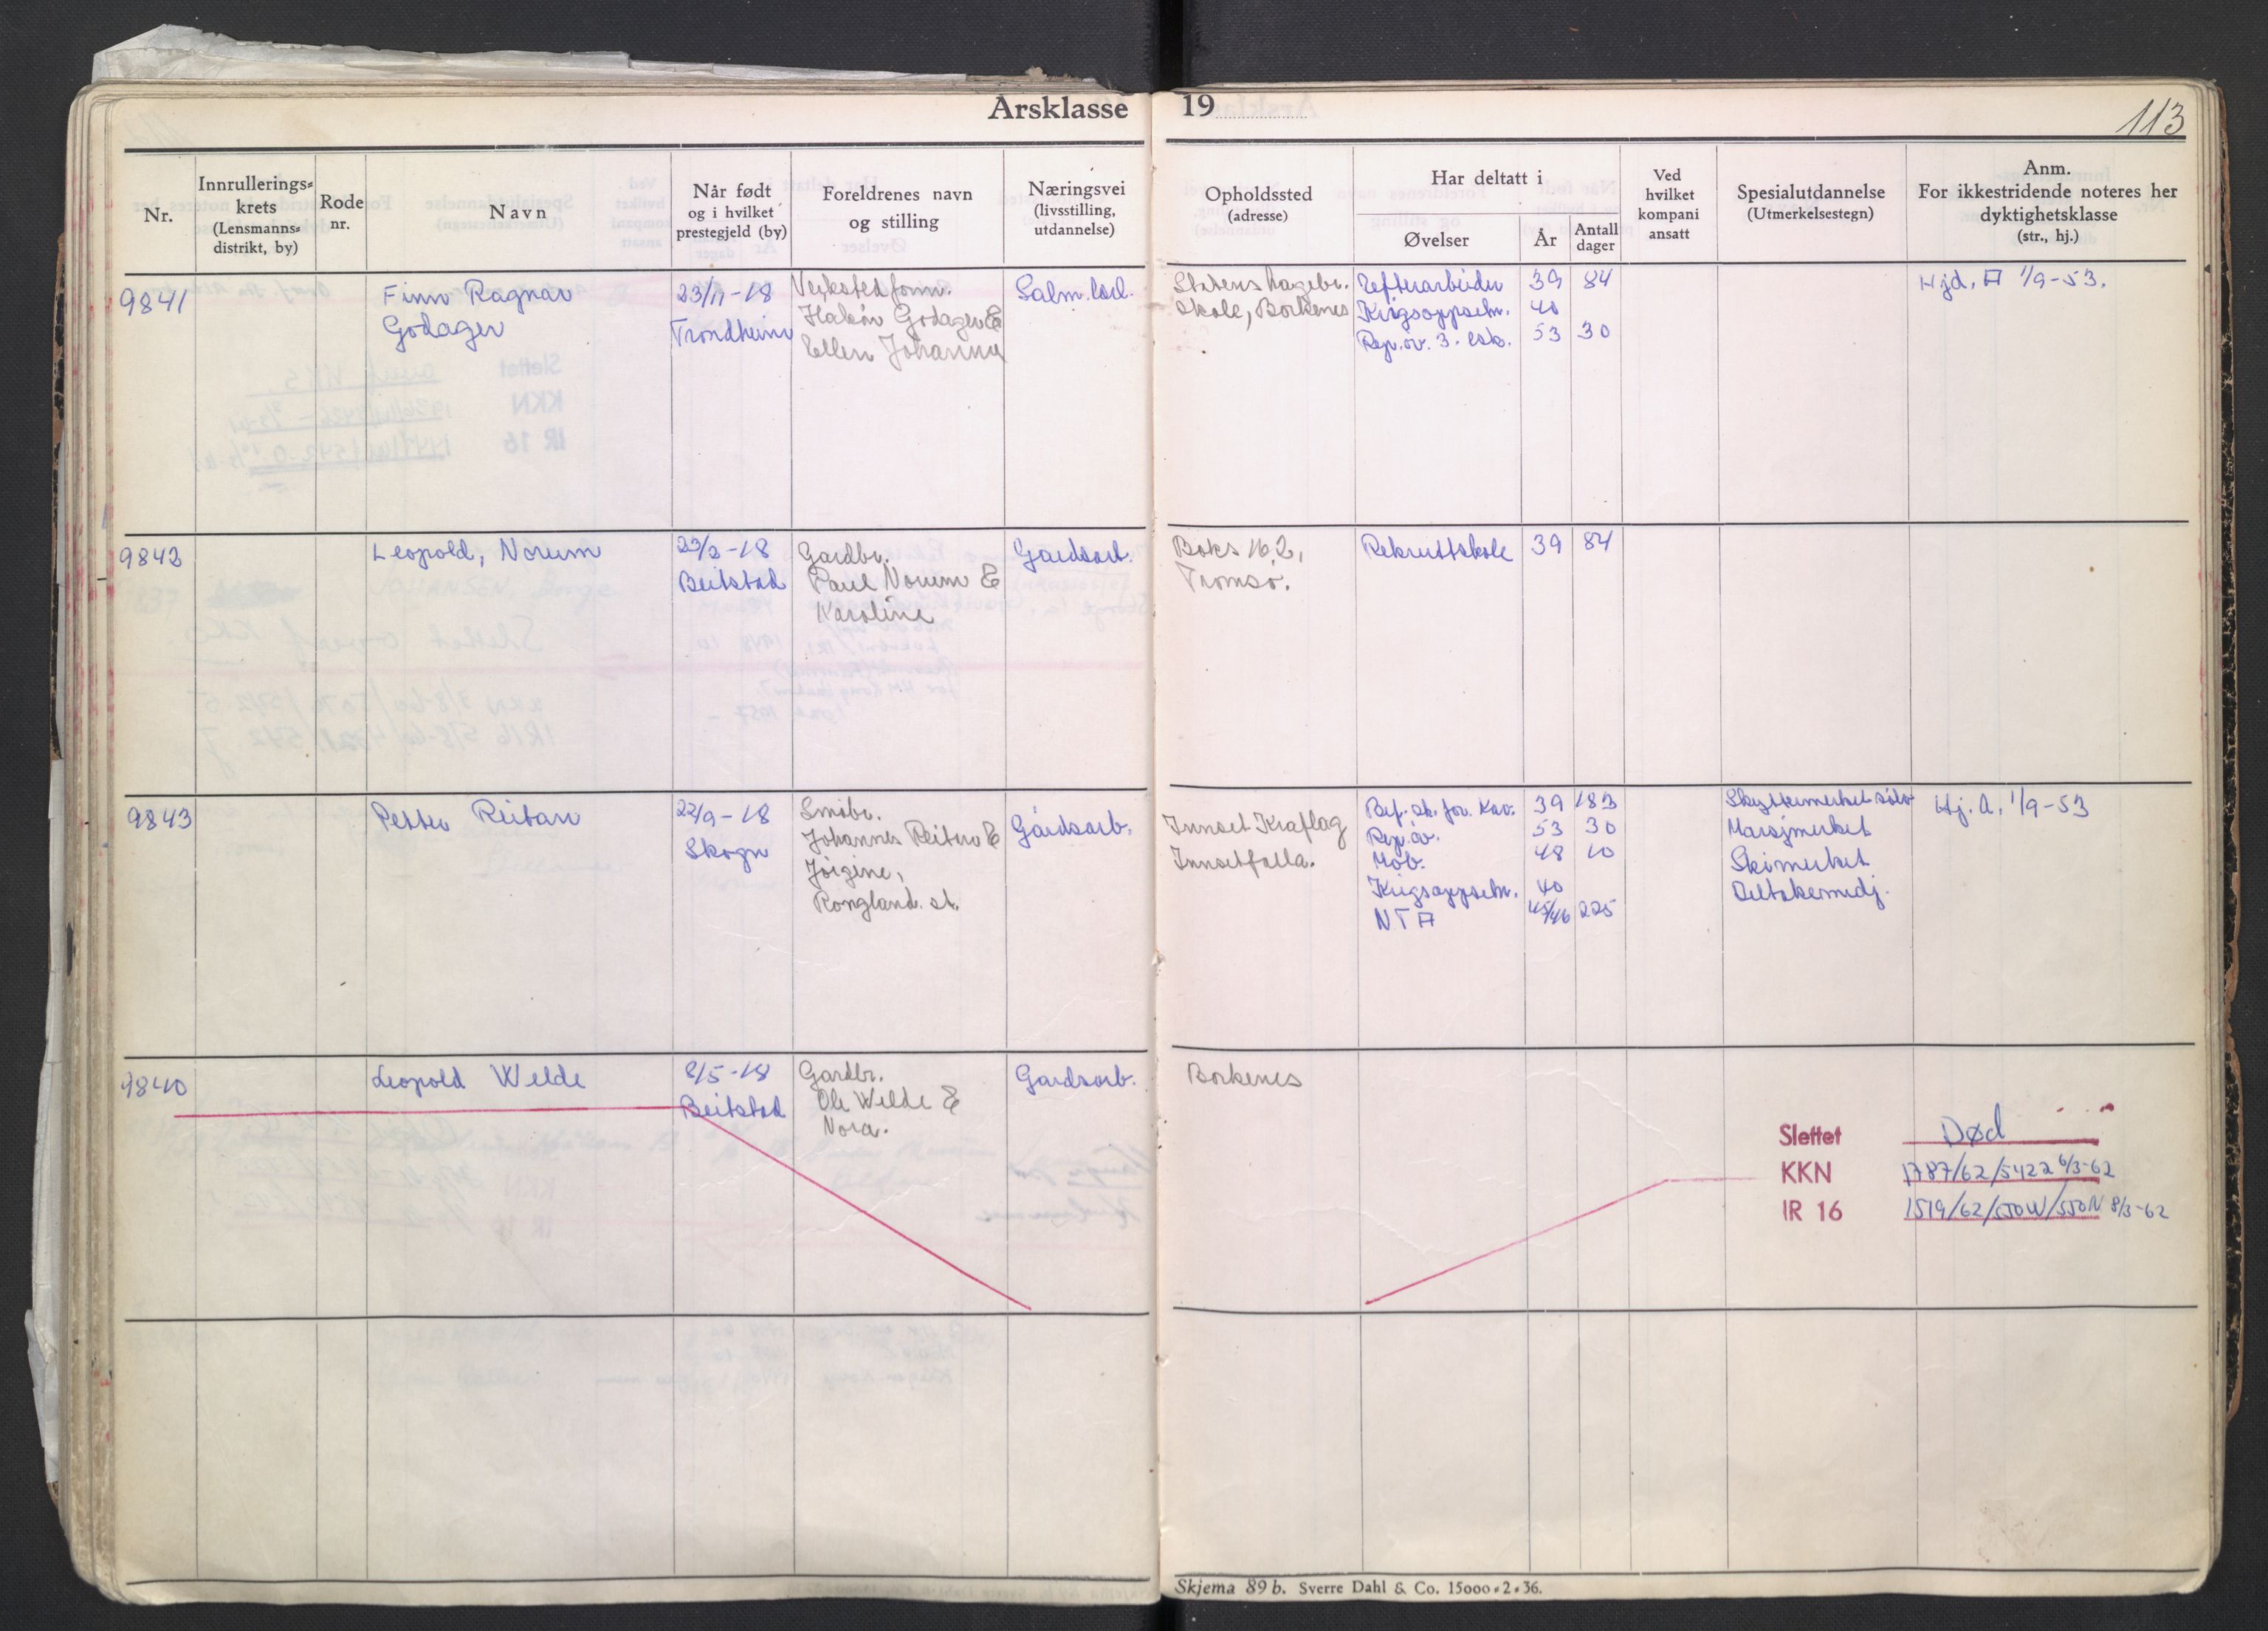 Årsklasse 19
113
Nr.
Innrullerings-
krets
(Lensmanns-
distrikt, by)
Rode
nr.
Navn
Når født
og i hvilket
prestegjeld (by)
Foreldrenes navn
og stilling
Næringsvei
(livsstilling,
utdannelse)
Opholdssted
(adresse)
Har deltatt i
Øvelser
År
Antall
dager
Ved
hvilket
kompani
ansatt
Spesialutdannelse
(Utmerkelsestegn)
Anm.
For ikkestridende noteres her
dyktighetsklasse
(str., hj.)
9841
Finn Ragnar
Godager
23/11-18
Trondheim
Verkstedform.
Hakon Godager &
Ellen Johanna
Statens hagebr.
skole, Borkenes
39 84
Krigsoppsetn. 40
Rep.øv. 3. esk. 53 30
Hjd. A 1/9-53.
9842
Leopold, Norum
23/2-18
Beitstad
Gardbr.
Paul Norum &
Karoline
Gardsarb.
Boks 162,
Tromsø.
Rekruttskole 39 84
9843
Petter Reitan
22/9-18
Skogn
Småbr.
Johannes Reitan &
Jørgine,
Rongland. st.
Gårdsarb.
Innset Kraflag
Innsetfalla.
Bef. sk. for Kav. 39 183
Rep.øv. 53 30
Mob. 48 10
Krigsoppsetn. 40
NTA 45/46 225
Skyttermerket sølv
Marsjmerket
Skimerket
Deltakermedj.
Hj. A. 1/9-53
9840
Leopold Welde
8/5-18
Beitstad
Gardbr.
Ole Welde &
Nora.
Gardsarb.
Borkenes
Slettet Død
KKN 1787/62/5422 6/3-62
IR 16 1519/62/550W/550N 8/3-62
Skjema 89 b. Sverre Dahl & Co. 15000-2-36.